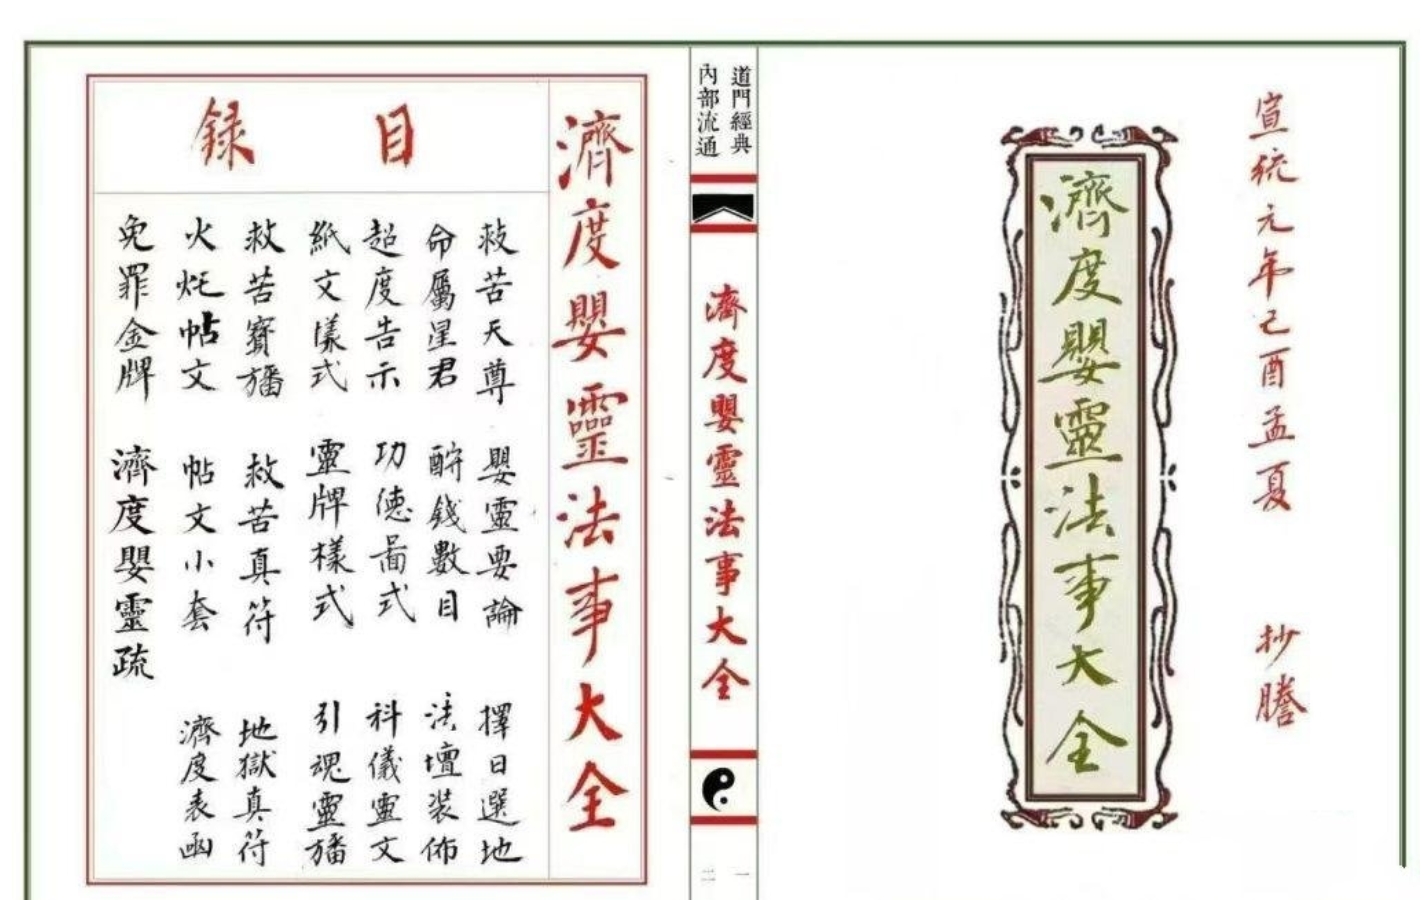 宣統元年己酉孟夏 抄謄
濟度嬰靈法事大全
道門經典
內部流通
濟度嬰靈法事大全
一
二
濟度嬰靈法事大全
目錄
救苦天尊 嬰靈要論 擇日選地
命屬星君 酧錢數目 法壇裝佈
超度告示 功德啚式 科儀靈文
紙文樣式 靈牌樣式 引魂靈旛
救苦寶旛 救苦真符 地獄真符
火炉帖文 帖文小套 濟度表函
免罪金牌 濟度嬰靈疏